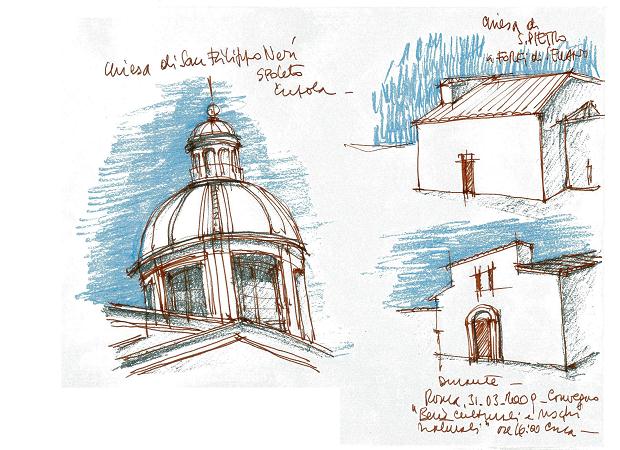 Chiesa di San Filippo Neri
Spoleto
Cupola -
Chiesa di
S. PIETRO
a FORCA di
Durante -
Roma, 31.03.2009 - Convegno
"Beni culturali e rischi
naturali" ore 16:00 circa -